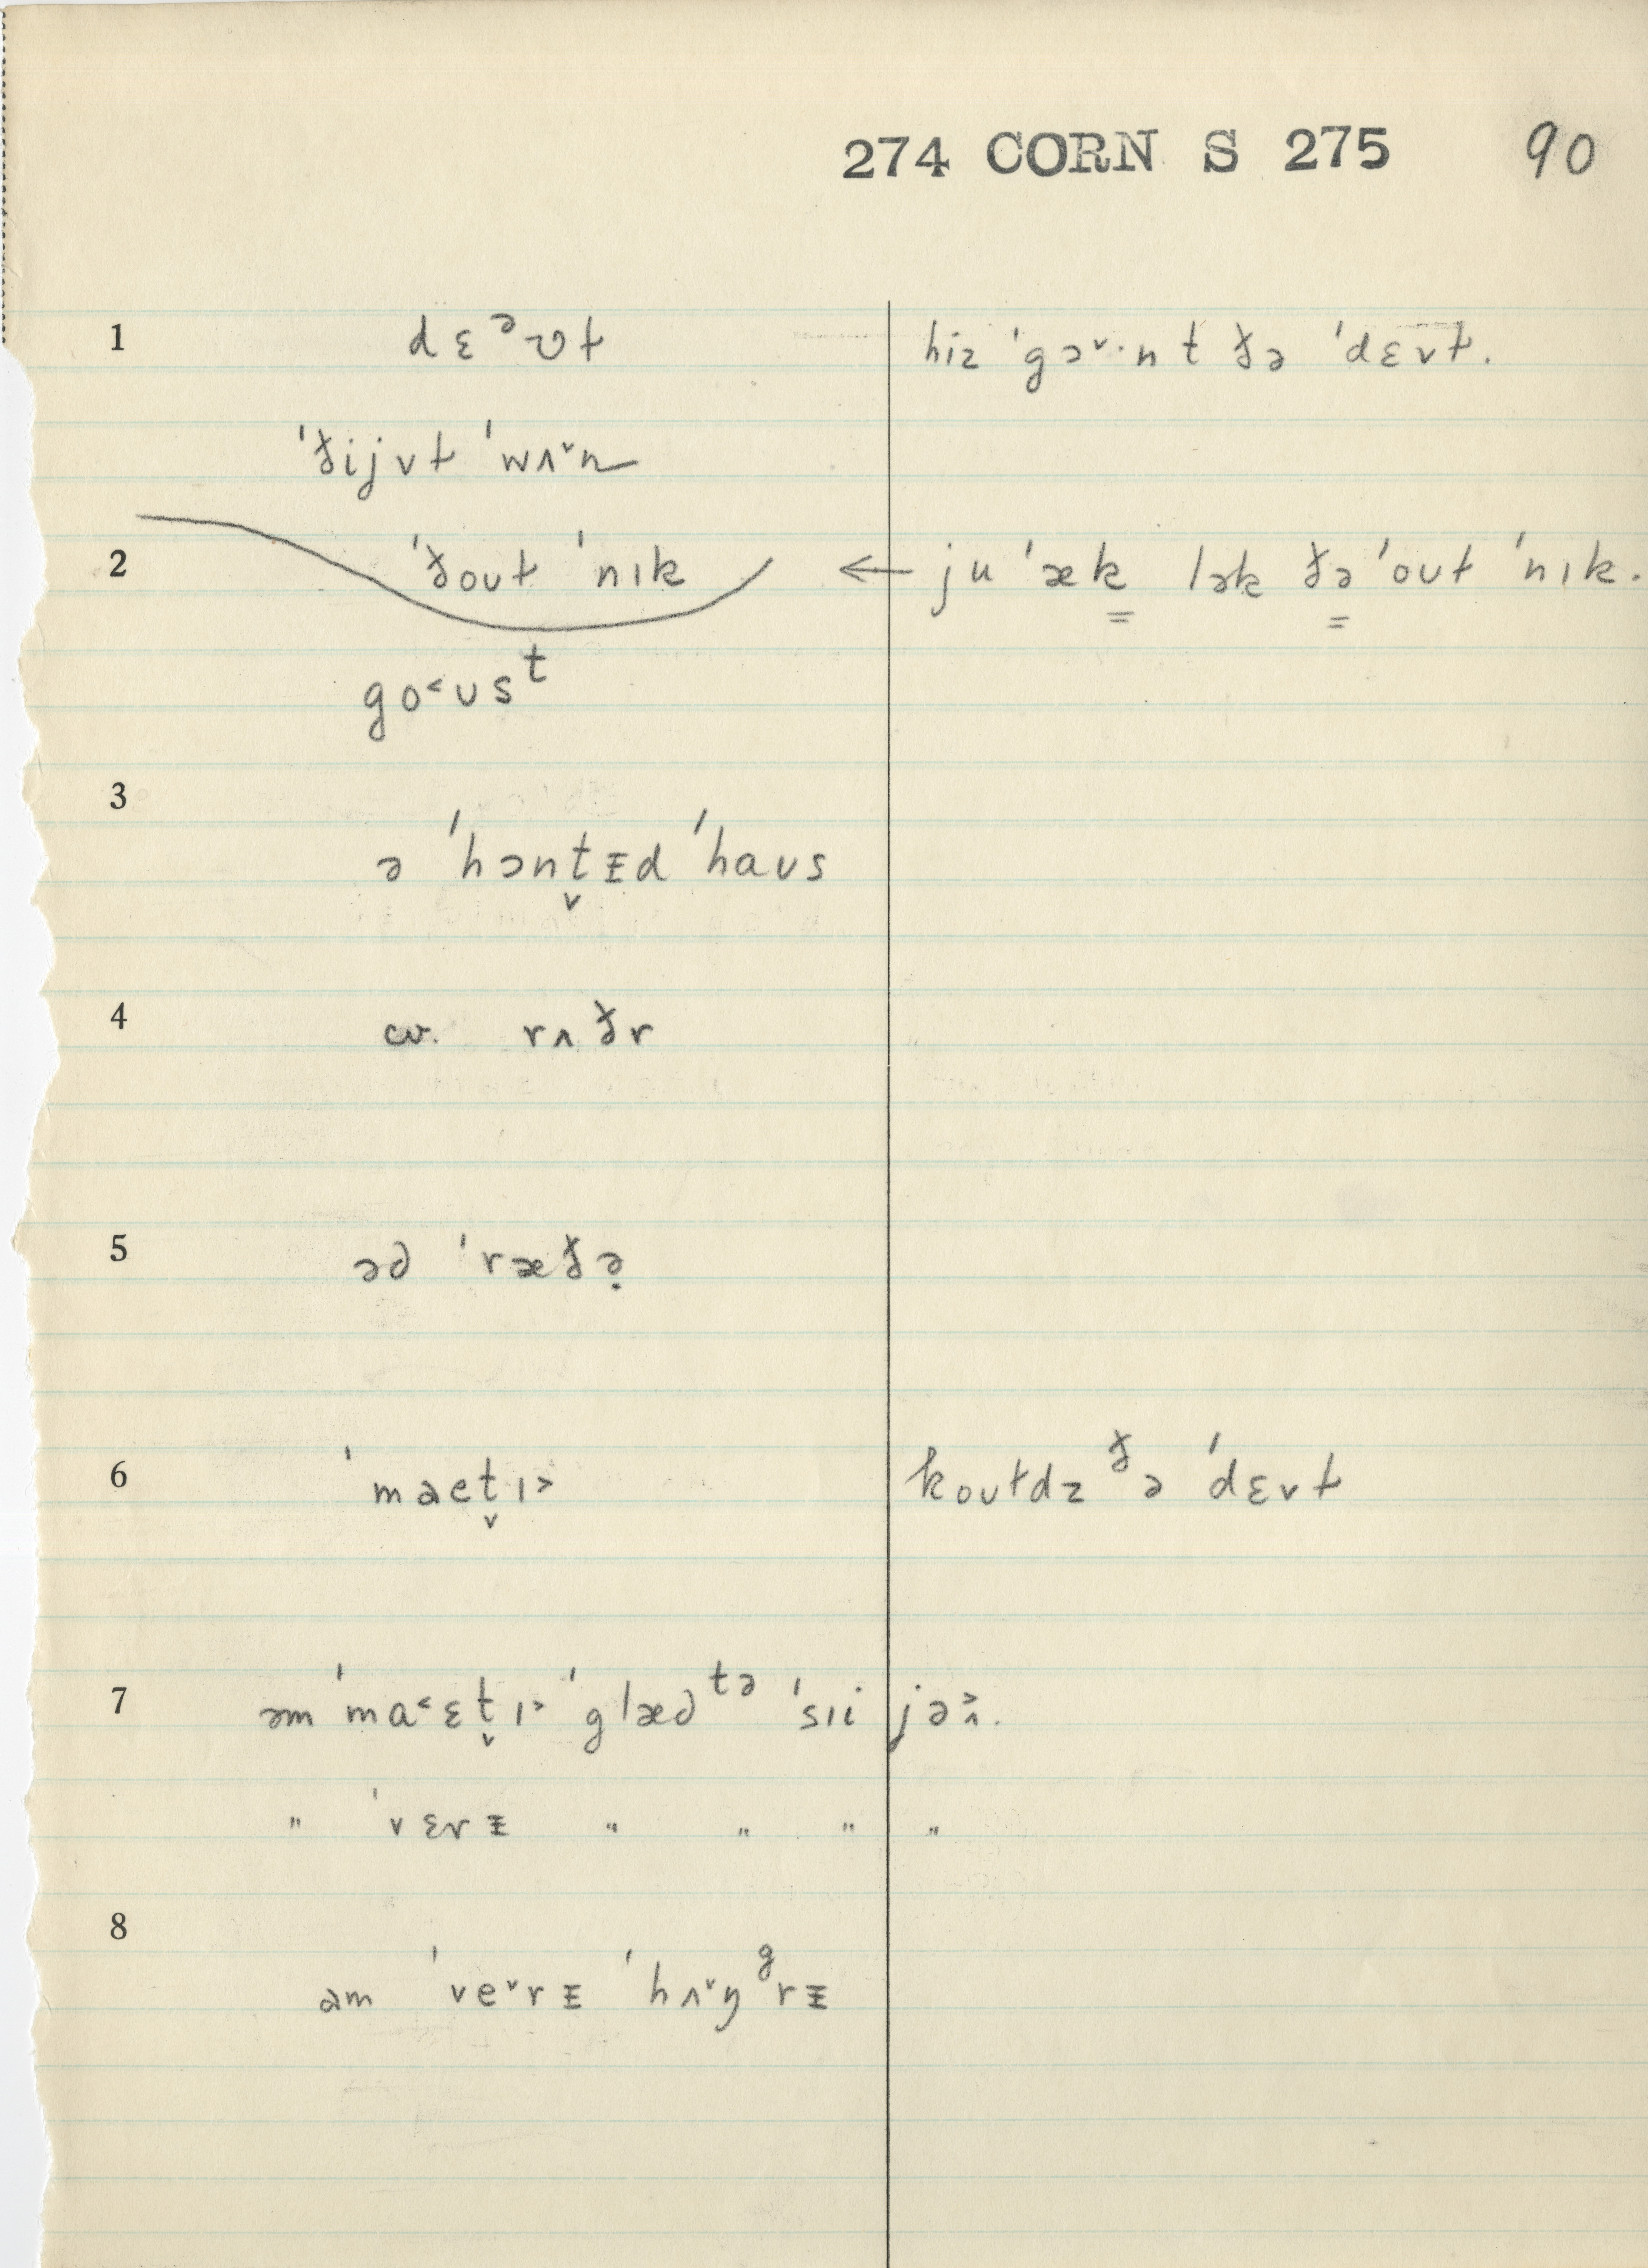 274 CORN S 275 90
1 dɛᵊʊɫ hiz ˈgɔ˅·n t ðə ˈdɛvɫ.
ˈðijvɫ ˈwʌ˅n
2 ˈðouɫ ˈnɪk ← ju ˈæk lək ðə ˈouɫ ˈnɪk.
go˂ʊsᵗ
3
ə ˈhɔnt̬ᵻd ˈhaʊs
4 cv. rʌðr
5 əd ˈræðə̣
6 ˈmaet̬ɪ˃ kouɫdz ᶞə ˈdɛvɫ
7 əm ˈma˂ɛt̬ɪ˃ ˈglæd ᵗᵊ ˈsɪi jə˄˃.
" ˈvɛrᵻ " " " "
8
am ˈve˅rᵻ ˈhʌ˅ŋᵍrᵻ